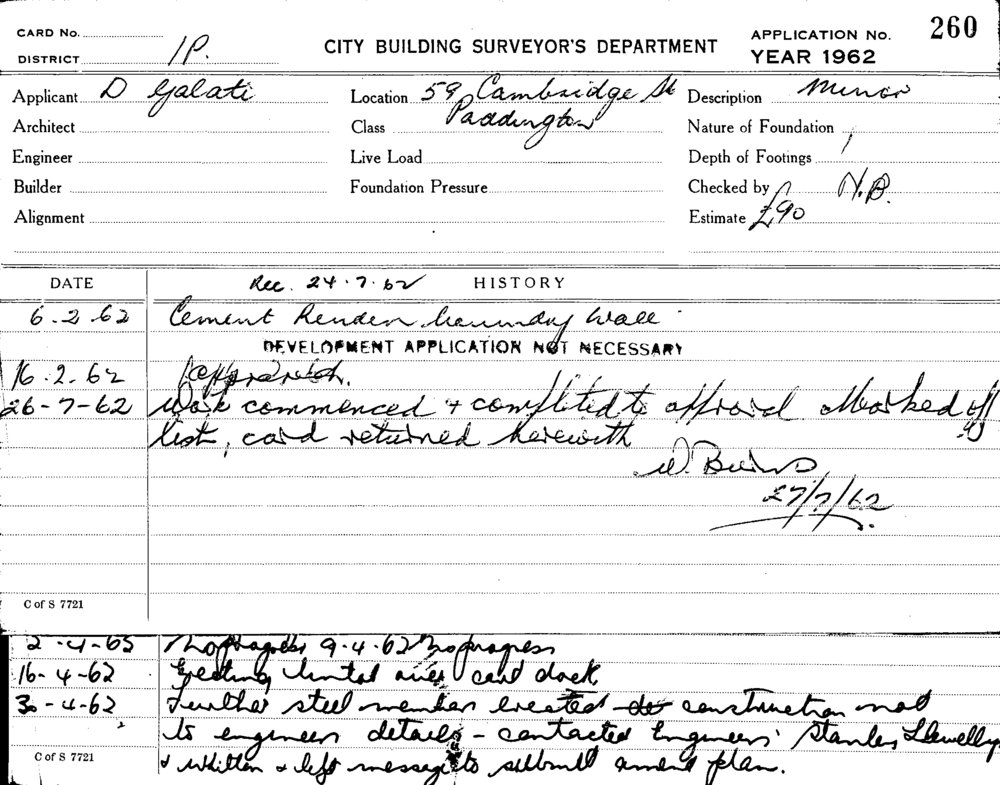 CARD No.
DISTRICT 1P.
CITY BUILDING SURVEYOR'S DEPARTMENT
APPLICATION No. 260
YEAR 1962
Applicant D Galati
Location 59 Cambridge St
Paddington
Description Minor
Architect
Class
Nature of Foundation
Engineer
Live Load
Depth of Footings
Builder
Foundation Pressure
Checked by N.B.
Alignment
Estimate £90
DATE
Rec. 24.7.62 HISTORY
6.2.62 Cement Render boundary wall
DEVELOPMENT APPLICATION NOT NECESSARY
16.2.62
26-7-62 Work commenced + completed to approval Marked off
list, card returned herewith
W. Burns
27/7/62
C of S 7721
2-4-62 No progress 9.4.62 No progress
16-4-62 Erecting lintol over card dock
30-4-62 Further steel member erected construction not
to engineers details - contacted Engineers' Stanley Llewellyn
+ Whitten + left message to submit amend plan.
C of S 7721